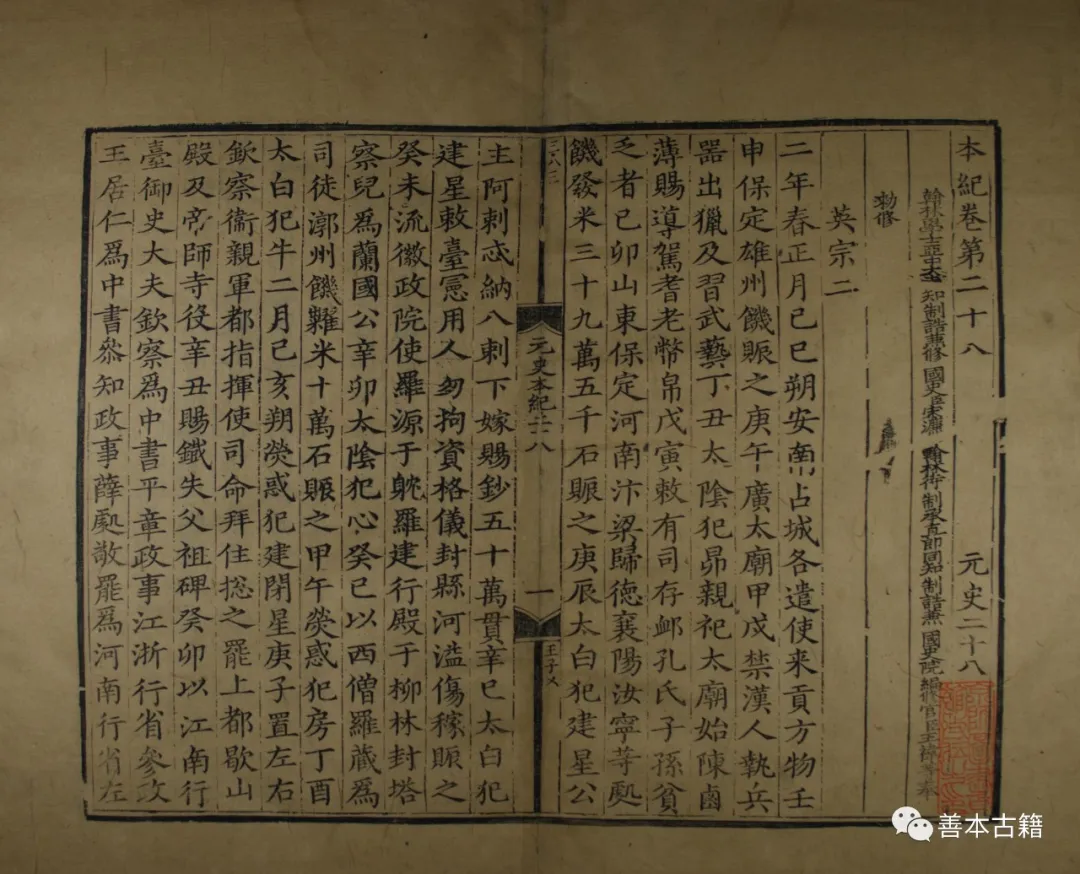 本紀卷第二十八 元史二十八
翰林學士亞中大夫知制誥兼修國史臣宋濂 翰林待制承直郎同知制誥兼國史院編修官臣王禕等奉
勑修
英宗二
二年春正月己巳朔安南占城各遣使来貢方物壬
申保定雄州饑賑之庚午廣太廟甲戌禁漢人執兵
器出獵及習武藝丁丑太陰犯昴親祀太廟始陳鹵
薄賜導駕耆老幣帛戊寅敕有司存邺孔氏子孫貧
乏者己卯山東保定河南汴梁歸德襄陽汝寧等䖏
饑發米三十九萬五千石賑之庚辰太白犯建星公
元史本紀廿八
一
主阿剌忒納八剌下嫁賜鈔五十萬貫辛巳太白犯
建星敕臺憲用人勿拘資格儀封縣河溢傷稼賑之
癸未流徽政院使羅源于躭羅建行殿于柳林封塔
察兒爲蘭國公辛卯太陰犯心癸巳以西僧羅藏爲
司徒漷州饑糶米十萬石賑之甲午熒惑犯房丁酉
太白犯牛二月己亥朔熒惑犯建閉星庚子置左右
欽察衞親軍都指揮使司命拜住揔之罷上都歇山
殿及帝師寺役辛丑賜鐵失父祖碑癸卯以江南行
臺御史大夫欽察爲中書平章政事江浙行省參政
王居仁爲中書叅知政事薛䖏敬罷爲河南行省左
善本古籍